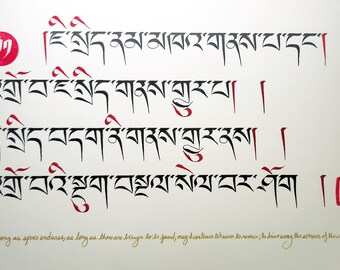 །ཇི་སྲིད་ནམ་མཁའ་གནས་པ་དང་།
འགྲོ་བ་ཇི་སྲིད་གནས་གྱུར་པ། །
སྲིད་བདག་ནི་གནས་གྱུར་ནས། །
འགྲོ་བའི་སྡུག་བསྔལ་སེལ་བར་ཤོག །
long as space endures, as long as there are beings to be found, may I continue likewise to remain, to drive away the sorrows of the